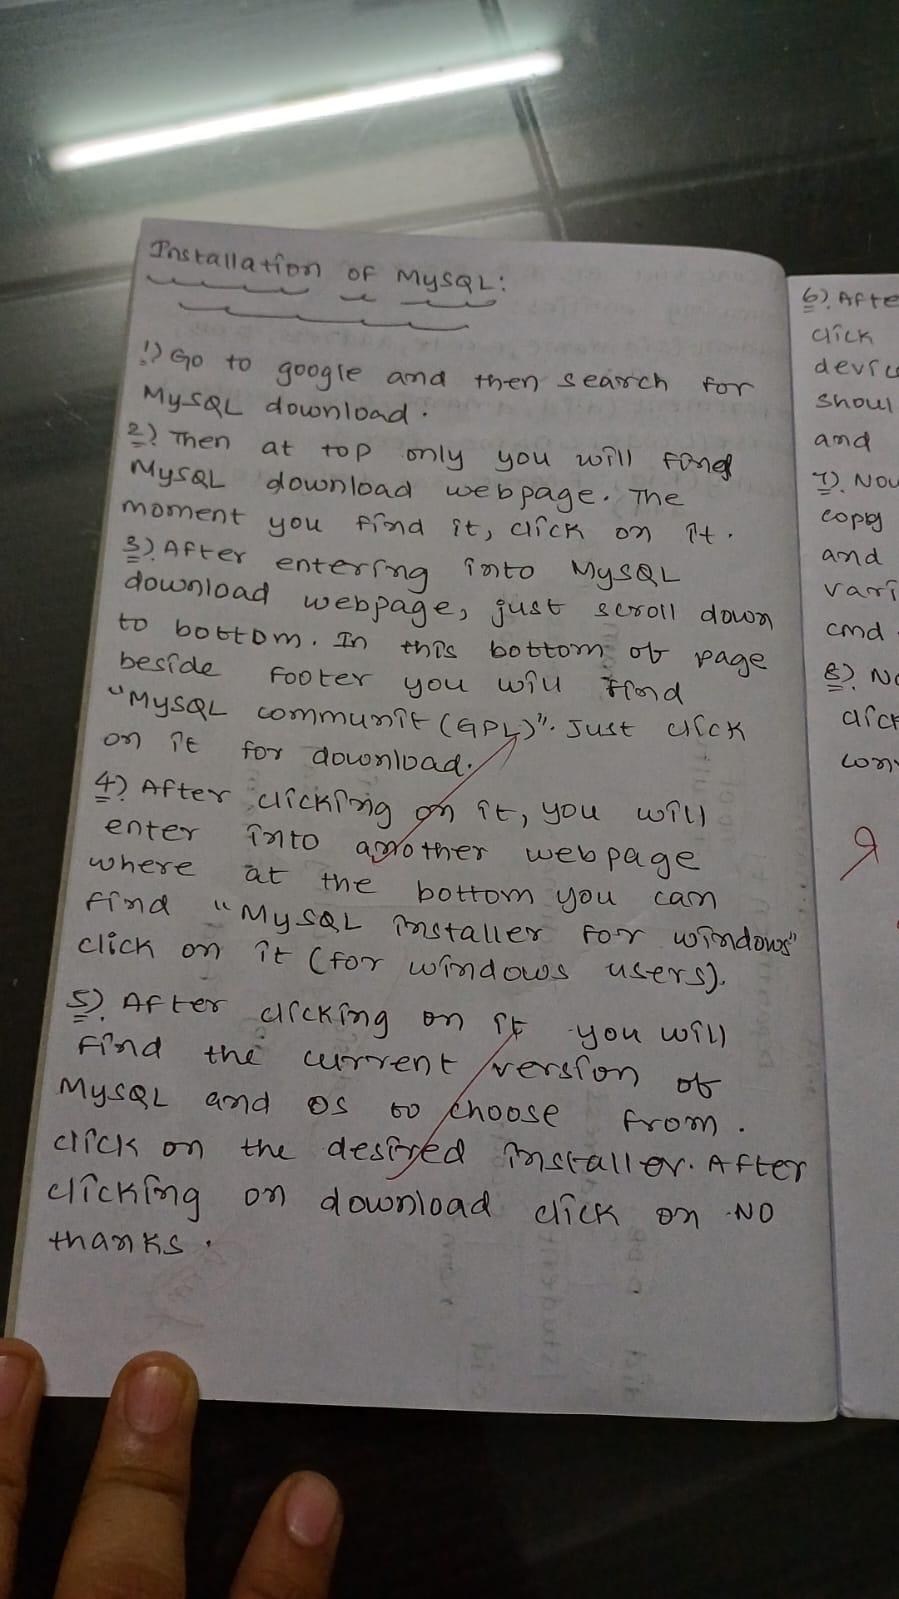 Installation of MySQL:
1) Go to google and then search for
MySQL download.
2) Then at top only you will find
MySQL download webpage. The
moment you find it, click on it.
3) After entering into MySQL
download webpage, just scroll down
to bottom. In this bottom of page
beside footer you will find
"MySQL communit (GPL)". Just click
on it for download.
4) After clicking on it, you will
enter into another webpage
where at the bottom you can
find "MySQL installer for windows"
click on it (for windows users).
5). After clicking on it you will
find the current version of
MySQL and OS to choose from.
click on the desired installer. After
clicking on download click on NO
thanks.
6). Afte
click
devic
shoul
and
7). Now
copy
and
vari
cmd
8). No
click